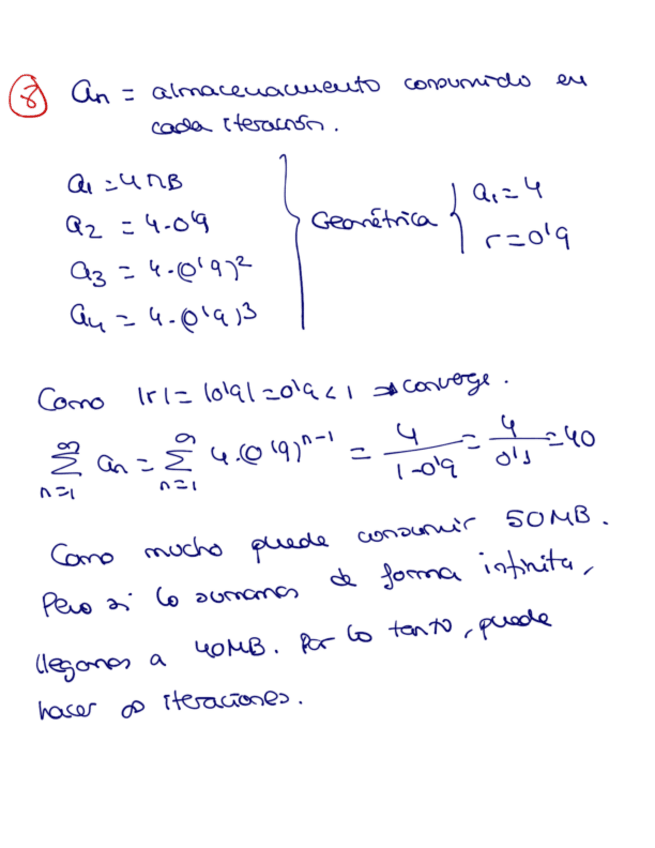 8 an = almacenamiento consumido en
cada iteración.
a1 = 4 MB
a2 = 4·0'9
a3 = 4·(0'9)²
a4 = 4·(0'9)³
Geométrica { a1 = 4
r = 0'9
Como |r| = |0'9| = 0'9 < 1 ⇒ converge.
∑_{n=1}^{∞} an = ∑_{n=1}^{∞} 4·(0'9)^{n-1} = 4/(1-0'9) = 4/0'1 = 40
Como mucho puede consumir 50MB.
Pero si lo sumamos de forma infinita,
llegamos a 40MB. Por lo tanto, puede
hacer ∞ iteraciones.